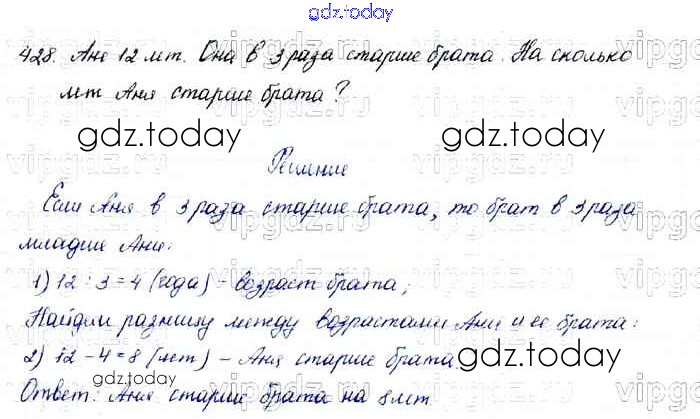 gdz.today
428. Ане 12 лет. Она в 3 раза старше брата. На сколько
лет Аня старше брата?
gdz.today gdz.today
Решение
Если Аня в 3 раза старше брата, то брат в 3 раза
младше Ани:
1) 12 : 3 = 4 (года) - возраст брата;
Найдем разницу между возрастами Ани и ее брата:
2) 12 - 4 = 8 (лет) - Аня старше брата.
gdz.today gdz.today
Ответ: Аня старше брата на 8 лет.